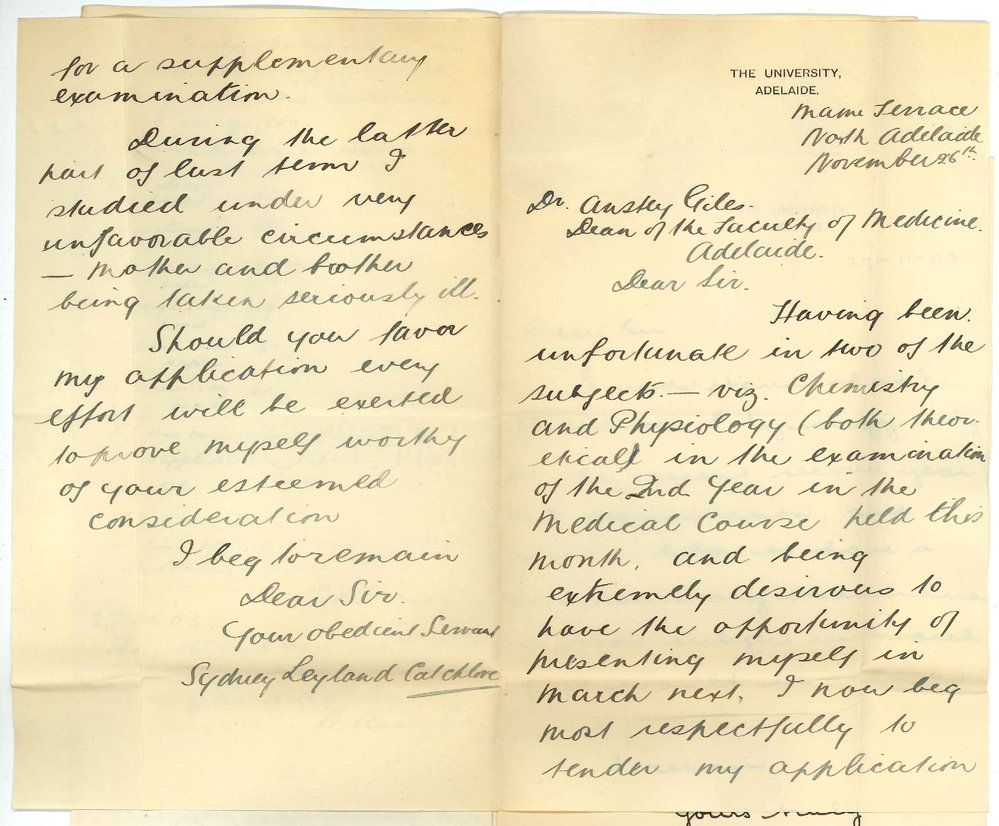 THE UNIVERSITY,
ADELAIDE.
Mame Terrace
North Adelaide
November 26th
Dr. Anstey Giles.
Dean of the Faculty of Medicine.
Adelaide.
Dear Sir.
Having been
unfortunate in two of the
subjects. — viz. Chemistry
and Physiology (both theor-
etical) in the examination
of the 2nd Year in the
Medical Course held this
month, and being
extremely desirous to
have the opportunity of
presenting myself in
March next. I now beg
most respectfully to
tender my application
for a supplementary
examination.
During the latter
part of last term I
studied under very
unfavorable circumstances
— Mother and brother
being taken seriously ill.
Should you favor
my application every
effort will be exerted
to prove myself worthy
of your esteemed
consideration
I beg to remain
Dear Sir.
Your obedient Servant
Sydney Leyland Catchlove
Yours truly